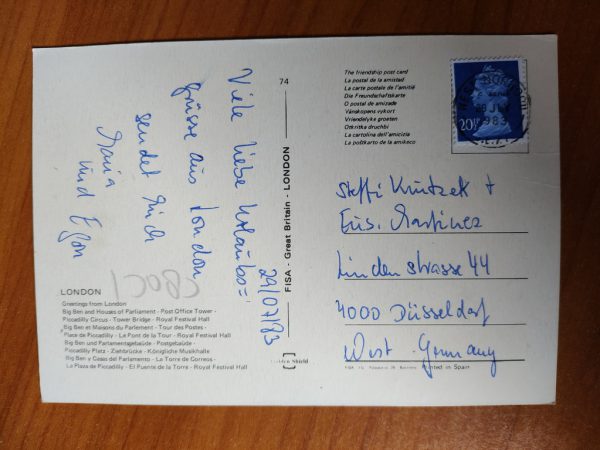 Viele liebe Urlaubs=
grüsse aus London
sendet Euch
Maria
und Egon
29/07/83
LONDON
Greetings from London:
Big Ben and Houses of Parliament - Post Office Tower -
Piccadilly Circus - Tower Bridge - Royal Festival Hall
Big Ben et Maisons du Parlement - Tour des Postes -
Place de Piccadilly - La Pont de la Tour - Royal Festival Hall
Big Ben und Parlamentsgebäude - Postgebäude -
Piccadilly Platz - Ziehbrücke - Königliche Musikhalle
Big Ben y Casas del Parlamento - La Torre de Correos -
La Plaza de Piccadilly - El Puente de la Torre - Royal Festival Hall
74
FISA - Great Britain - LONDON
Golden Shield
The friendship post card
La postal de la amistad
La carte postale de l'amitié
Die Freundschaftskarte
O postal de amizade
Vänskapens vykort
Vriendelyke groeten
Otkritka druchbi
La cartolina dell'amicizia
La poŝtkarto de la amikeco
20½
1983
Steffi +
Martinez
Lindenstrasse 44
4000 Düsseldorf
West-Germany
Printed in Spain